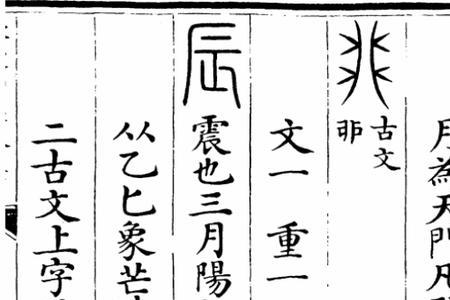 月為天門凡
古文
文一 重一
辰 震也三月陽
从乙匕象芒
二古文上字